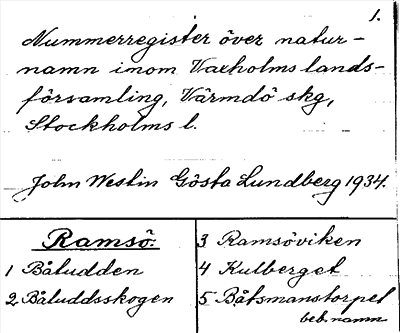 1.
Nummerregister över natur-
namn inom Vaxholms lands-
församling, Värmdö skg,
Stockholms l.
John Westin Gösta Lundberg 1934.
Ramsö.
1 Båludden
2 Båluddsskogen
3 Ramsöviken
4 Kulberget
5 Båtsmanstorpet
beb. namn